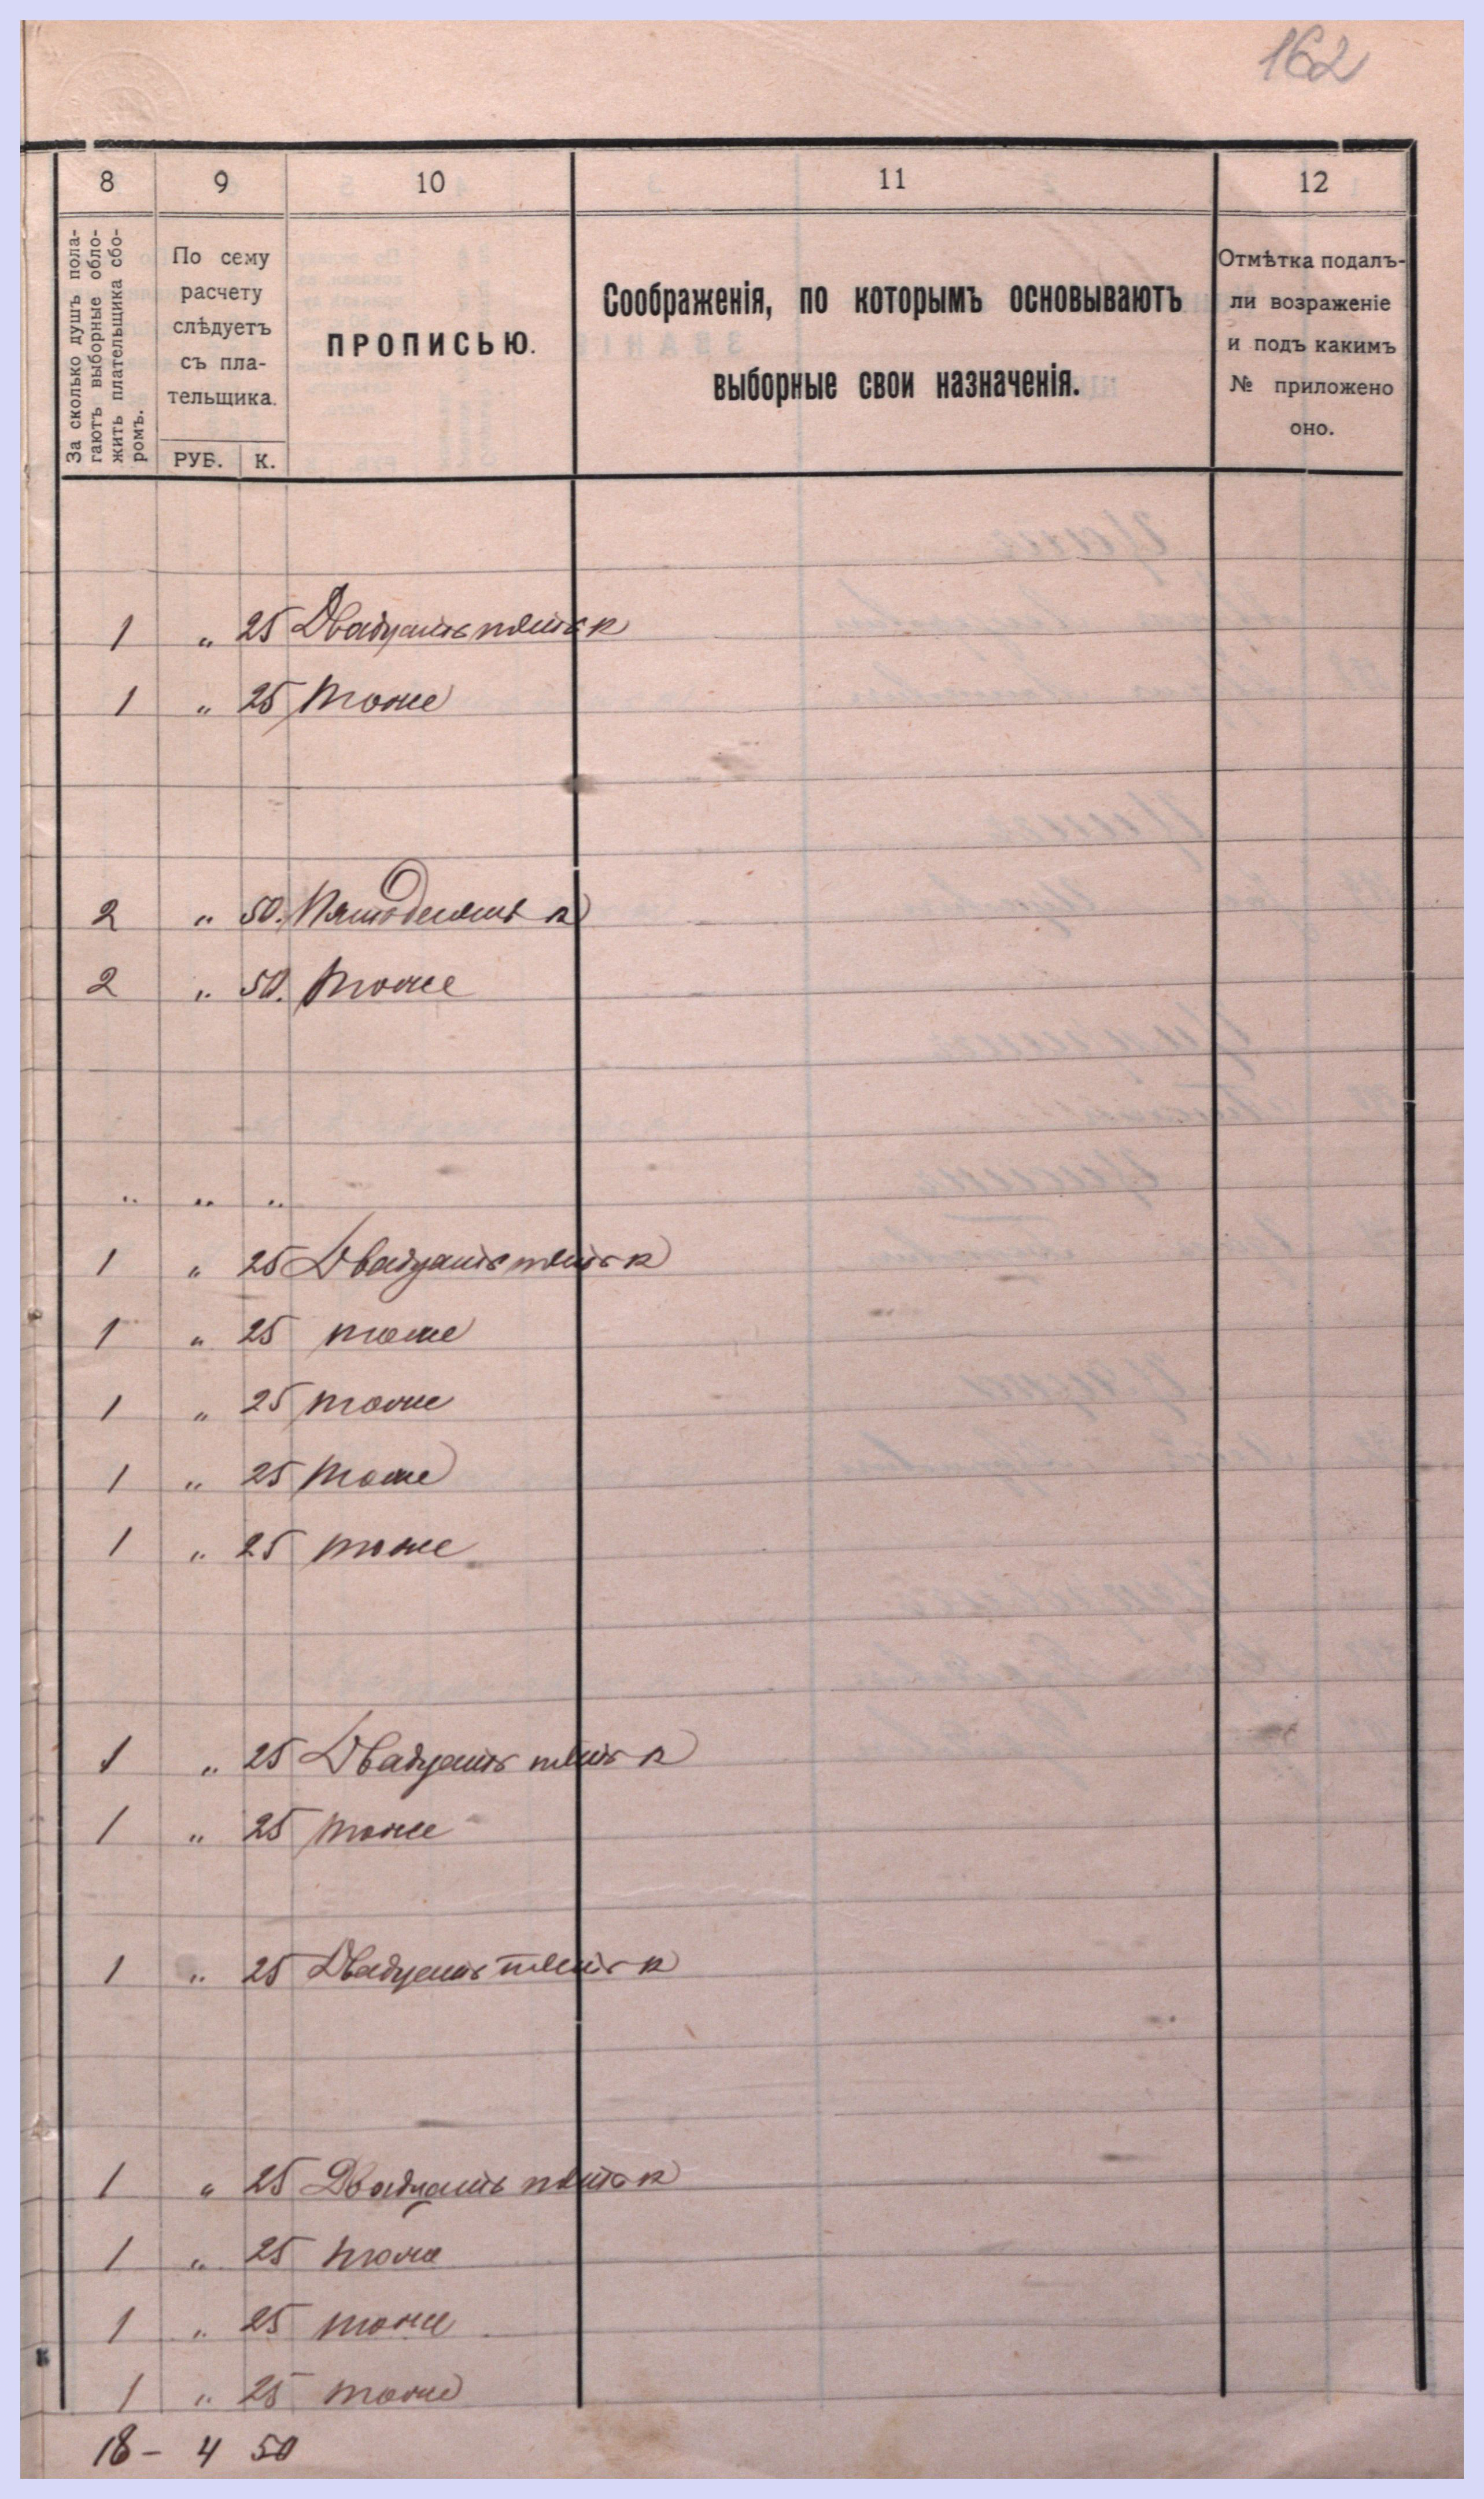 162
8 9 10 11 12
За сколько душъ пола-
гаютъ выборные обло-
жить плательщика сбо-
ромъ.
По сему
расчету
слѣдуетъ
съ пла-
тельщика.
РУБ. К.
ПРОПИСЬЮ.
Соображенія, по которымъ основываютъ
выборные свои назначенія.
Отмѣтка подалъ-
ли возраженіе
и подъ какимъ
№ приложено
оно.
1 „ 25 Двадцать пять к
1 „ 25 тоже
2 „ 50. Пятьдесятъ к
2 „ 50. тоже
„ „ „
1 „ 25 Двадцать пять к
1 „ 25 тоже
1 „ 25 тоже
1 „ 25 тоже
1 „ 25 тоже
1 „ 25 Двадцать пять к
1 „ 25 тоже
1 „ 25 Двадцать пять к
1 „ 25 Двадцать пять к
1 „ 25 тоже
1 „ 25 тоже
1 „ 25 тоже
18 – 4 50